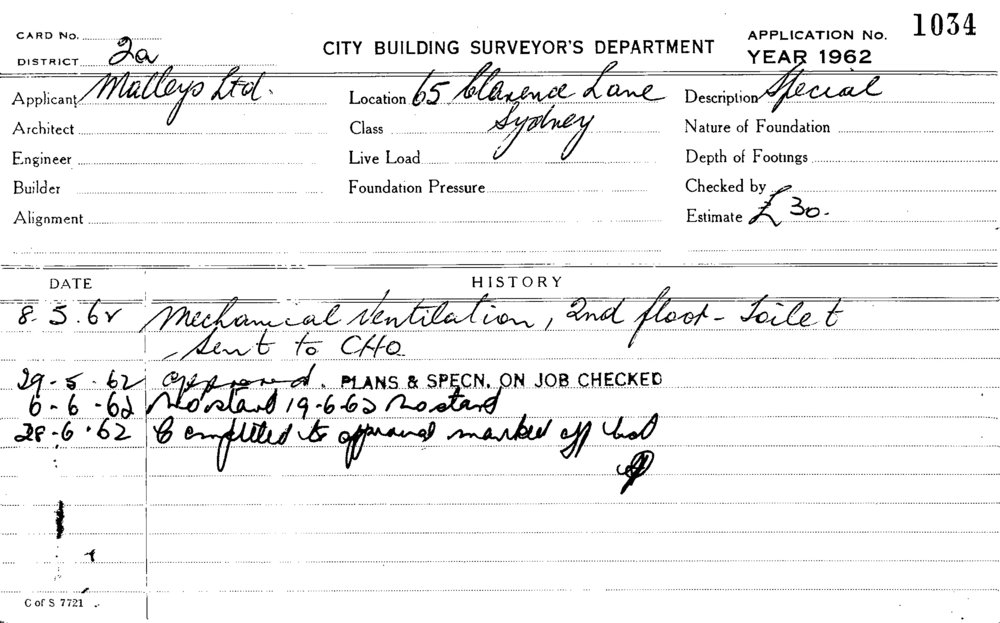 CARD No.
DISTRICT 2a
CITY BUILDING SURVEYOR'S DEPARTMENT
APPLICATION No. 1034
YEAR 1962
Applicant Malleys Ltd.
Location 65 Clarence Lane
Description Special
Architect
Class Sydney
Nature of Foundation
Engineer
Live Load
Depth of Footings
Builder
Foundation Pressure
Checked by
Alignment
Estimate £ 30.
DATE HISTORY
8.5.62 Mechanical Ventilation, 2nd floor - Toilet
Sent to CHO
29-5.62 Approved. PLANS & SPECN. ON JOB CHECKED
6-6-62 No start 19-6-62 No start
28-6.62 Completed to approval marked off
C of S 7721